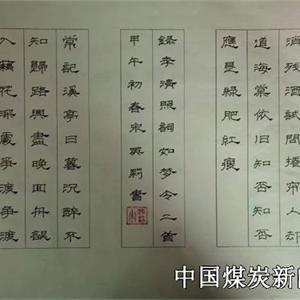 消殘酒試問捲帘人却
道海棠依旧知否知否
應是綠肥紅瘦
錄李清照詞如夢令二首
甲午初春宋英莉書
常記溪亭日暮沉醉不
知歸路興盡晚回舟誤
入藕花深處爭渡爭渡
中国煤炭新